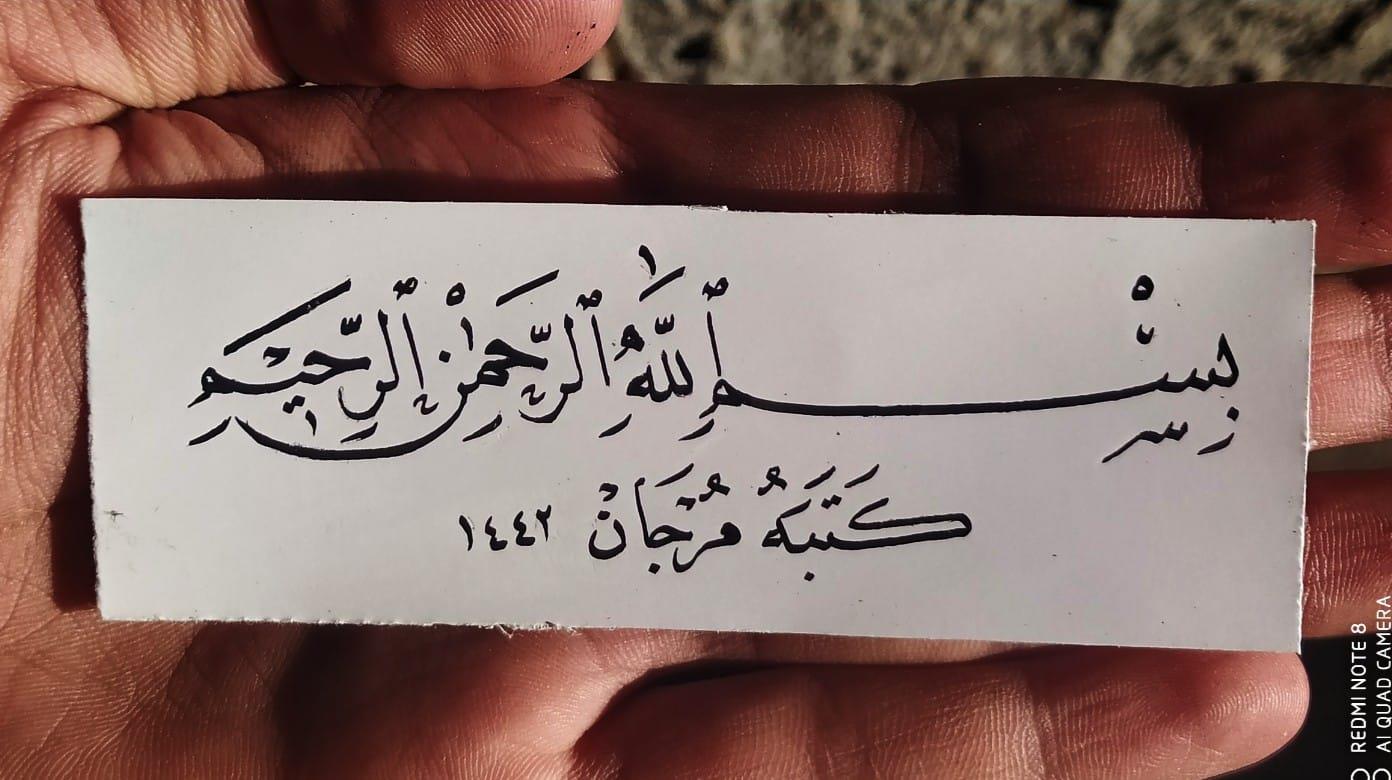 بِسْمِ ٱللَّهِ ٱلرَّحْمَٰنِ ٱلرَّحِيمِ
كَتَبَهُ مُرْجَانْ ١٤٤٢
REDMI NOTE 8
AI QUAD CAMERA